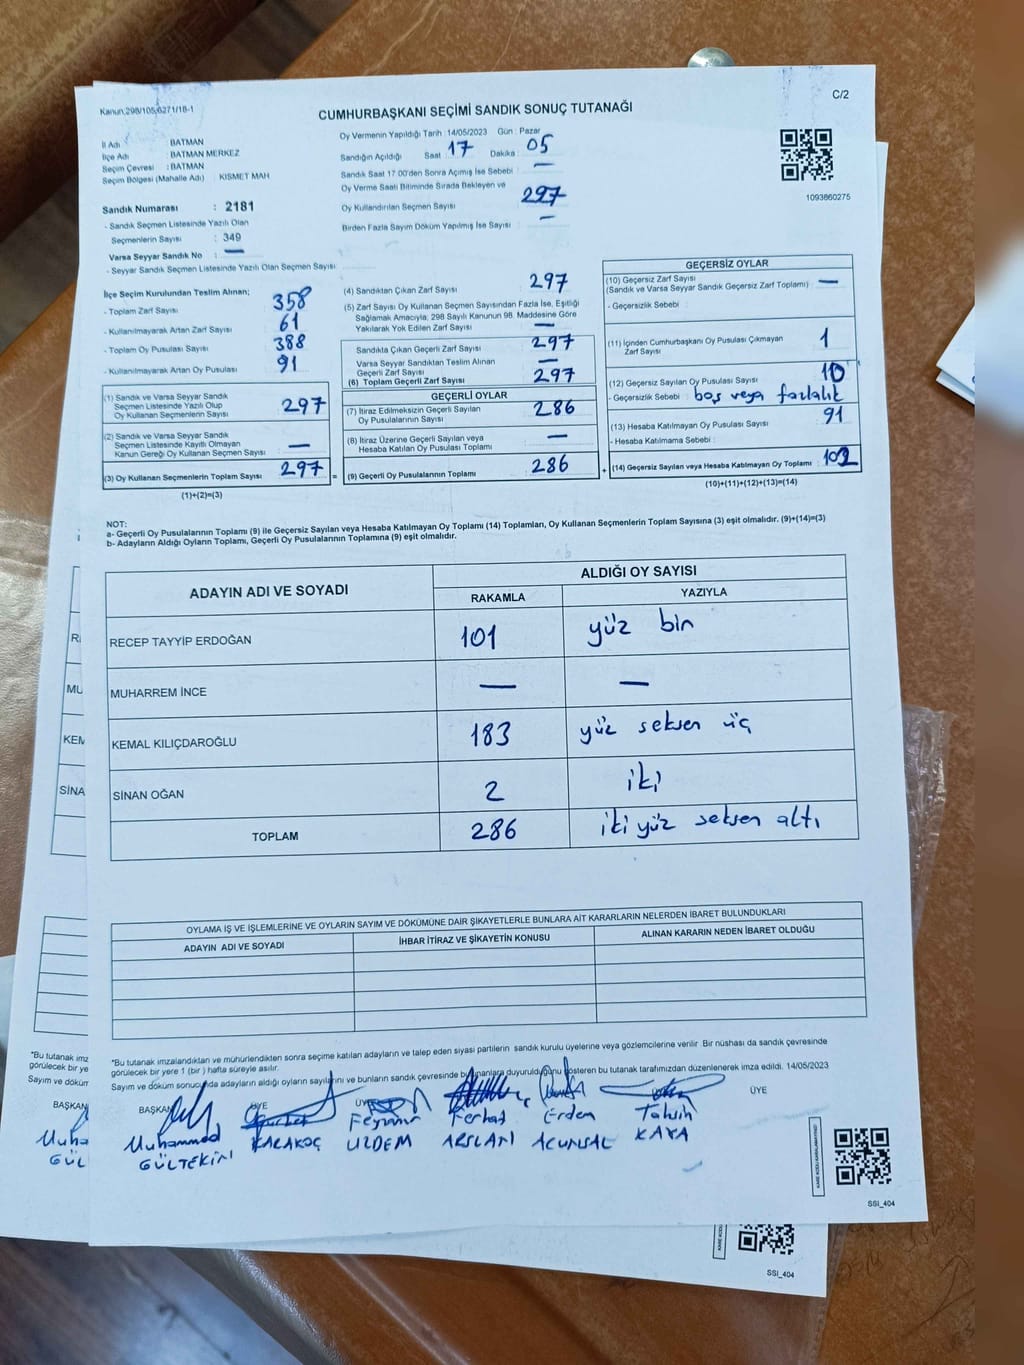 Kanun:298/105,6271/18-1
C/2
CUMHURBAŞKANI SEÇİMİ SANDIK SONUÇ TUTANAĞI
İl Adı : BATMAN
İlçe Adı : BATMAN MERKEZ
Seçim Çevresi : BATMAN
Seçim Bölgesi (Mahalle Adı) : KISMET MAH
Sandık Numarası : 2181
- Sandık Seçmen Listesinde Yazılı Olan
Seçmenlerin Sayısı : 349
Varsa Seyyar Sandık No : —
- Seyyar Sandık Seçmen Listesinde Yazılı Olan Seçmen Sayısı
Oy Vermenin Yapıldığı Tarih : 14/05/2023 Gün : Pazar
Sandığın Açıldığı Saat : 17 Dakika : 05
Sandık Saat 17:00'den Sonra Açımış İse Sebebi : —
Oy Verme Saati Bitiminde Sırada Bekleyen ve
Oy Kullandırılan Seçmen Sayısı : 297
Birden Fazla Sayım Döküm Yapılmış İse Sayısı : —
1093860275
İlçe Seçim Kurulundan Teslim Alınan;
- Toplam Zarf Sayısı : 358
- Kullanılmayarak Artan Zarf Sayısı : 61
- Toplam Oy Pusulası Sayısı : 388
- Kullanılmayarak Artan Oy Pusulası : 91
(1) Sandık ve Varsa Seyyar Sandık
Seçmen Listesinde Yazılı Olup
Oy Kullanan Seçmenlerin Sayısı : 297
(2) Sandık ve Varsa Seyyar Sandık
Seçmen Listesinde Kayıtlı Olmayan
Kanun Gereği Oy Kullanan Seçmen Sayısı : —
(3) Oy Kullanan Seçmenlerin Toplam Sayısı : 297
(1)+(2)=(3)
(4) Sandıktan Çıkan Zarf Sayısı : 297
(5) Zarf Sayısı Oy Kullanan Seçmen Sayısından Fazla İse, Eşitliği
Sağlamak Amacıyla, 298 Sayılı Kanunun 98. Maddesine Göre
Yakılarak Yok Edilen Zarf Sayısı : —
Sandıkta Çıkan Geçerli Zarf Sayısı : 297
Varsa Seyyar Sandıktan Teslim Alınan
Geçerli Zarf Sayısı : —
(6) Toplam Geçerli Zarf Sayısı : 297
GEÇERLİ OYLAR
(7) İtiraz Edilmeksizin Geçerli Sayılan
Oy Pusulalarının Sayısı : 286
(8) İtiraz Üzerine Geçerli Sayılan veya
Hesaba Katılan Oy Pusulası Toplamı : —
(9) Geçerli Oy Pusulalarının Toplamı : 286
GEÇERSİZ OYLAR
(10) Geçersiz Zarf Sayısı
(Sandık ve Varsa Seyyar Sandık Geçersiz Zarf Toplamı) : —
- Geçersizlik Sebebi :
(11) İçinden Cumhurbaşkanı Oy Pusulası Çıkmayan
Zarf Sayısı : 1
(12) Geçersiz Sayılan Oy Pusulası Sayısı : 10
- Geçersizlik Sebebi : boş veya fazlalık
(13) Hesaba Katılmayan Oy Pusulası Sayısı : 91
- Hesaba Katılmama Sebebi :
(14) Geçersiz Sayılan veya Hesaba Katılmayan Oy Toplamı : 102
(10)+(11)+(12)+(13)=(14)
NOT:
a- Geçerli Oy Pusulalarının Toplamı (9) ile Geçersiz Sayılan veya Hesaba Katılmayan Oy Toplamı (14) Toplamları, Oy Kullanan Seçmenlerin Toplam Sayısına (3) eşit olmalıdır. (9)+(14)=(3)
b- Adayların Aldığı Oyların Toplamı, Geçerli Oy Pusulalarının Toplamına (9) eşit olmalıdır.
ADAYIN ADI VE SOYADI
ALDIĞI OY SAYISI
RAKAMLA YAZIYLA
RECEP TAYYİP ERDOĞAN 101 yüz bin
MUHARREM İNCE — —
KEMAL KILIÇDAROĞLU 183 yüz seksen üç
SİNAN OĞAN 2 iki
TOPLAM 286 iki yüz seksen altı
OYLAMA İŞ VE İŞLEMLERİNE VE OYLARIN SAYIM VE DÖKÜMÜNE DAİR ŞİKAYETLERLE BUNLARA AİT KARARLARIN NELERDEN İBARET BULUNDUKLARI
ADAYIN ADI VE SOYADI İHBAR İTİRAZ VE ŞİKAYETİN KONUSU ALINAN KARARIN NEDEN İBARET OLDUĞU
*Bu tutanak imzalandıktan ve mühürlendikten sonra seçime katılan adayların ve talep eden siyasi partilerin sandık kurulu üyelerine veya gözlemcilerine verilir. Bir nüshası da sandık çevresinde
görülecek bir yere 1 (bir ) hafta süreyle asılır.
Sayım ve döküm sonucunda adayların aldığı oyların sayılarını ve bunların sandık çevresinde duyurulduğunu gösteren bu tutanak tarafımızdan düzenlenerek imza edildi. 14/05/2023
BAŞKAN ÜYE ÜYE ÜYE
Muhammed Feyruna Ferhat Erden Tahsin
GÜLTEKİN KARAKOÇ UZDEM ARSLAN ACUNSAL KAYA
SSI_404
SSI_404
*Bu tutanak imz
görülecek bir ye
Sayım ve döküm
BAŞKAN
Muha
GÜL